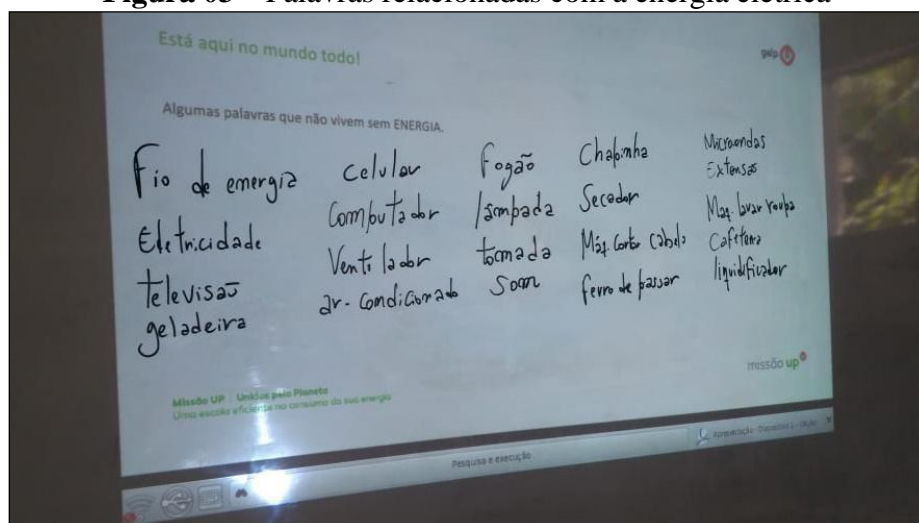 Figura 03 – Palavras relacionadas com a energia elétrica
Está aqui no mundo todo!
galp
Algumas palavras que não vivem sem ENERGIA.
Fio de energia
Eletricidade
televisão
geladeira
Celular
Computador
Ventilador
ar-condicionado
Fogão
lâmpada
tomada
Som
Chapinha
Secador
Máq. Corta Cabelo
ferro de passar
Microondas
Extensão
Maq. lavar roupa
Cafeteira
liquidificador
missão up
Missão UP | Unidos pelo Planeta
Uma escola eficiente no consumo da sua energia
Pesquisa e execução